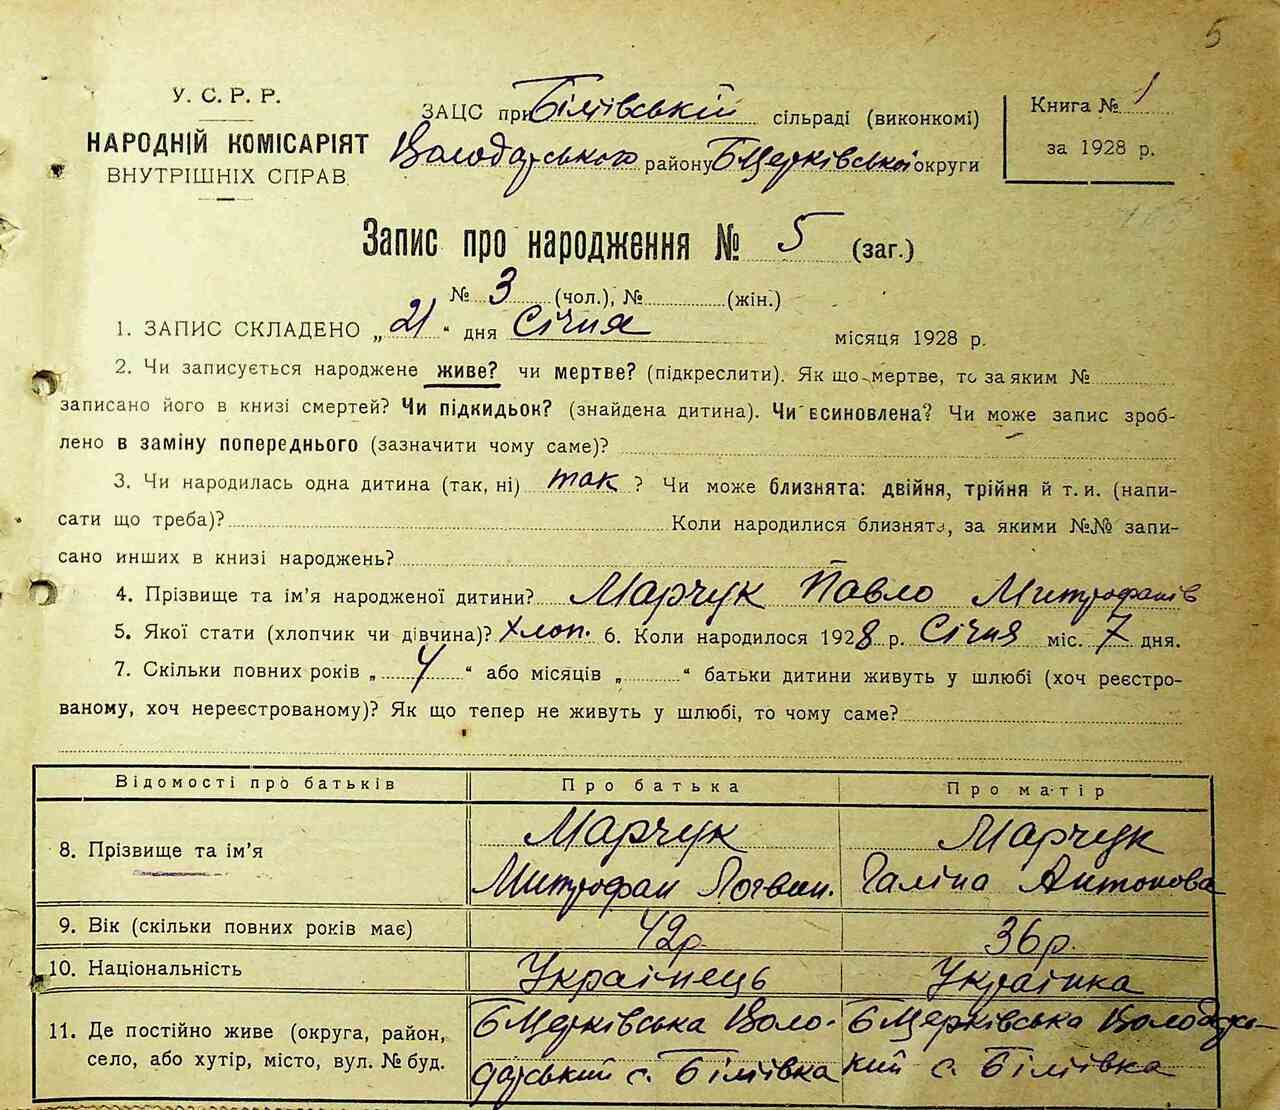 5
У. С. Р. Р.
НАРОДНІЙ КОМІСАРІЯТ
ВНУТРІШНІХ СПРАВ
ЗАЦС при Біліївській сільраді (виконкомі)
Володарського району БЦерківської округи
Книга № 1
за 1928 р.
Запис про народження № 5 (заг.)
№ 3 (чол.), № (жін.)
1. ЗАПИС СКЛАДЕНО „21“ дня Січня місяця 1928 р.
2. Чи записується народжене живе? чи мертве? (підкреслити). Як що мертве, то за яким №
записано його в книзі смертей? Чи підкидьок? (знайдена дитина). Чи всиновлена? Чи може запис зроб-
лено в заміну попереднього (зазначити чому саме)?
3. Чи народилась одна дитина (так, ні) так ? Чи може близнята: двійня, трійня й т. и. (напи-
сати що треба)? Коли народилися близнята, за якими №№ запи-
сано инших в книзі народжень?
4. Прізвище та ім’я народженої дитини? Марчук Павло Митрофанів
5. Якої стати (хлопчик чи дівчина)? Хлоп. 6. Коли народилося 1928 р. Січня міс. 7 дня.
7. Скільки повних років „ 4 “ або місяців „ “ батьки дитини живуть у шлюбі (хоч реєстро-
ваному, хоч нереєстрованому)? Як що тепер не живуть у шлюбі, то чому саме?
Відомості про батьків
Про батька
Про матір
8. Прізвище та ім’я
Марчук
Митрофан Логвин.
Марчук
Галіна Антонова
9. Вік (скільки повних років має)
42р.
36р.
10. Національність
Українець
Українка
11. Де постійно живе (округа, район,
село, або хутір, місто, вул. № буд.
БЦерківська Воло-
дарський с. Біліївка
БЦерківська Володарсь-
кий с. Біліївка